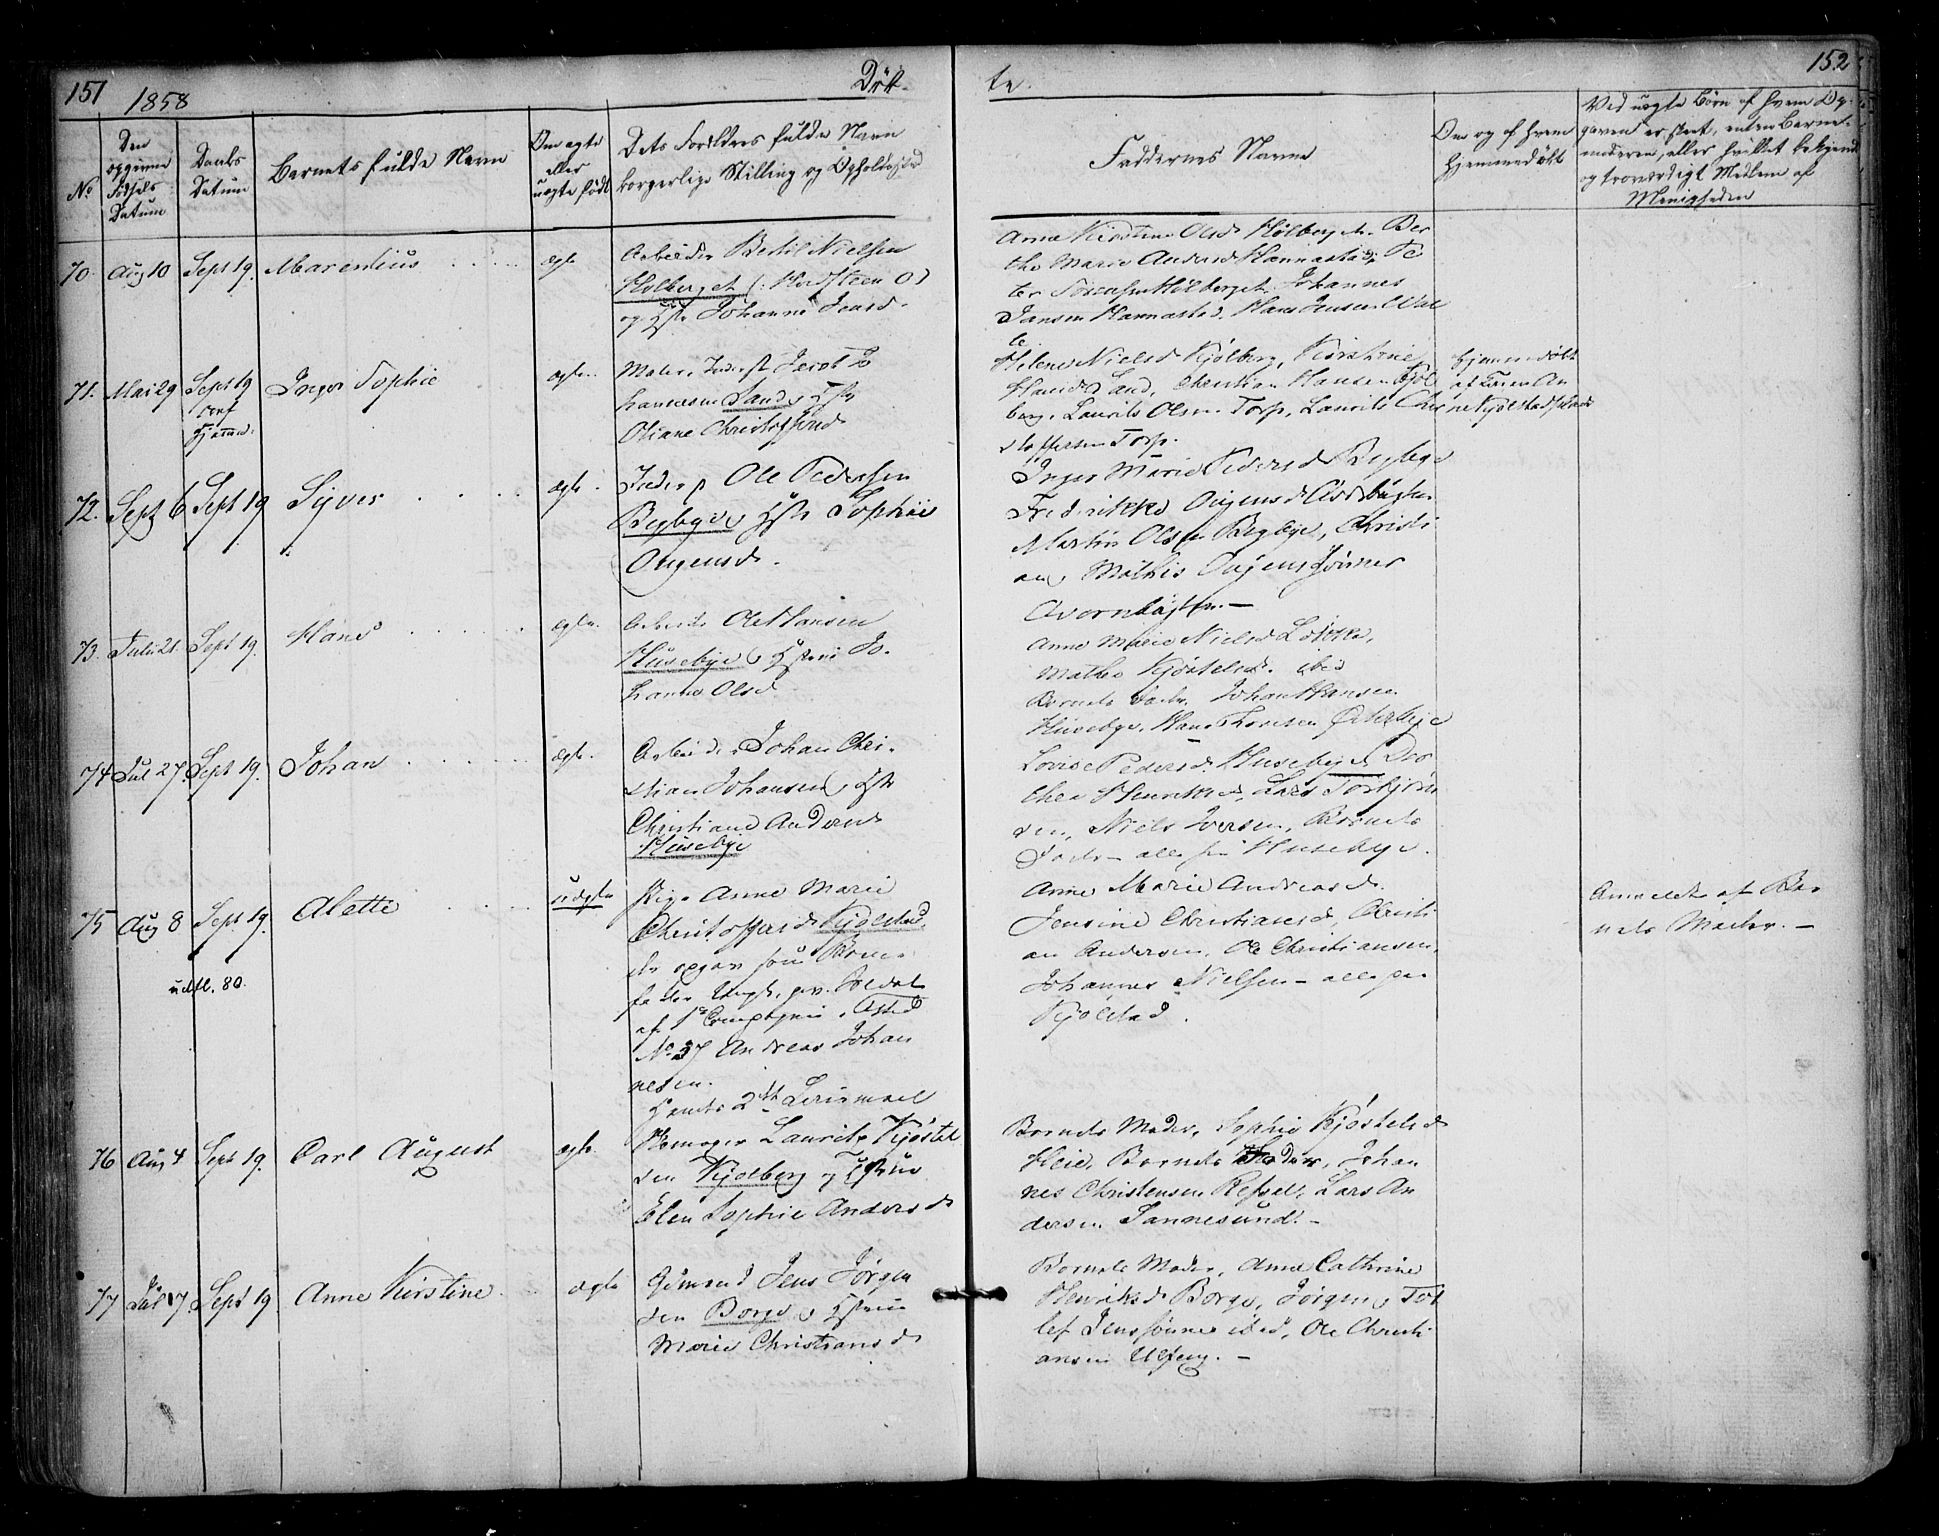 151 1858 Døb-
te. 152
No
Den opgivne Fødsels Datum
Daabs Datum
Barnets fulde Navn
Om ægte eller uægte født
Dets Forældres fulde Navn
borgerlige Stilling og Opholdssted
Faddernes Navne
Om og af hvem hjemmedøbt
Ved uægte Børn af hvem Op-
gaven er skeet, enten Barne-
moderen, eller hvilket bekjendt
og troværdigt Medlem af
Menigheden
70. Aug 10 Sept 19. Marentius ægte
Arbeider Bertil Nielsen
Holberget
og Hst. Johanne Jensd.
Anne Kirstine Olsd. Holberget. Ber
the Marie Andersd. Hannestad, Pe
ter Hølberget. Johannes
Jansen Hannestad. Hans Jensen Wal
le.
71. Mai 29 Sept 19 Inger Sophie ægte.
conf
hjemme.
Maler, Inderst Jacob Jo
hannesen Sand, Hst.
Oliane Christoffersd.
Helene Nielsd. Kjølberg, Kirstine
Hansd. Sand, Christian Hansen Kjøl
berg, Laurits Olsen Torp, Laurits Chri
stoffersen Torp.
Hjemmedøbt
af Karen An
ne Kjølstad
72. Sept 6 Sept 19 Syver ægte.
Inderst Ole Pedersen
Begbye, Hst. Sophie
Ougensd.
Inger Marie Pedersd. Begbye
Fredrikke Ougensd.
Martin Olsen Begbye, Christi
an, Mathis Ougens Sønner

73. Juli 21. Sept 19. Hans ægte.
Arbeider Ole Hansen
Husebye, Hstrue Jo-
hanne Olsd.
Anne Marie Nielsd. Løkke,
Mathea Kjøstelsd. ibid
Barnets Fader. Johan Hansen
Husebye, Hans Østerbye
74 Jul 27. Sept 19. Johan ægte.
Arbeider Johan Chri-
stian Johansen, Hst.
Christiane Andersd.
Husebye
Lovise Pedersd. Huseby, Doro
thea Henriksd., Lars Torbjørn
sen, Niels Iversen, Barnets
Fader – alle fra Huseby.
75 Aug 8 Sept 19. Alette uægte
udfl. 80.
Pige Anne Marie
Christoffersd. Kjølstad,
der opgav som Barne-
fader Ungk. gev. Soldat
af 1ste Compagnie,
No 37 Andreas Johan
nesen.
Hendes 2det Leiermaal
Anne Marie Andreasd.
Jensine Christiansd. Christi
an Andersen, Ole Christiansen,
Johannes Nielsen – alle paa
Kjølstad.
Anmeldt af Bar
nets Moder. –
76 Aug 4 Sept 19. Carl August ægte
Laurits Kjøstel
sen Kjølberg og Hstrue
Elen Sophie Andersd.
Barnets Moder, Sophie Kjøstelsd.
Heie, Barnets Fader, Johan
nes Christensen Refsel, Lars An
dersen Sannesund. –
77 Jul 17 Sept 19 Anne Kirstine ægte
Gaardmand Jens Jørgen
sen Borge, Hstrue
Marie Christiansd.
Barnets Moder, Anne Cathrine
Henriksd. Borge, Jørgen, Tol
lef Jenssønner ibid, Ole Christi
ansen Ulfeng. –